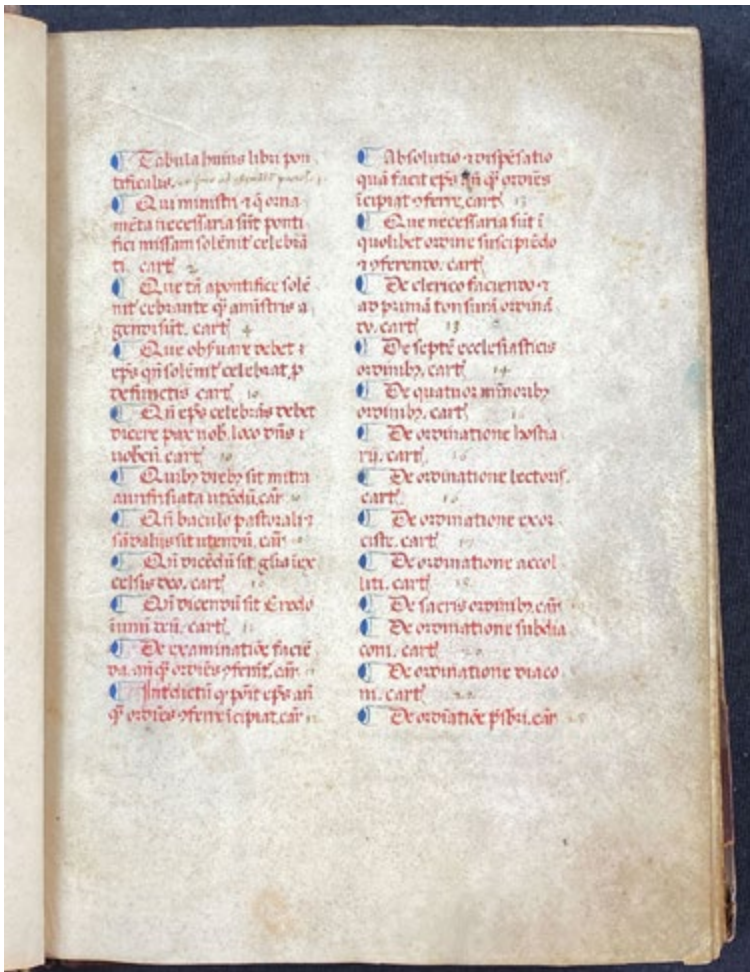 Tabula huius libri pon
tificalis.
Qui ministri ⁊ q̄ orna
mēta necessaria sūt ponti
fici missam solēnit celebrā
ti. cart
Que tā a pontifice solē
nit cebrante q̄ a mīstris a
gendi sūt. cart 4
Que obsuare debet
ep̄s qn̄ solēnit celebrat p
defunctis cart 10
Qn̄ ep̄s celebrās debet
dicere pax uob. loco dn̄s
uobcū. cart 10
Quibꝫ diebꝫ sit mitra
aurifrisiata utēdū. car
Qn̄ baculo pastorali ⁊
sādaliis sit utendū. car
Qn̄ dicēdū sit gl̄ia ī ex
celsis deo. cart 10
Qn̄ dicendū sit Credo
ī unū deū. cart
De examinatiōe faciē
da. an̄ q̄ ordīes ꝯferat. car
Intdictū q̄ pōit ep̄s an̄
q̄ ordīes ꝯferre īcipiat. car
Absolutio ⁊ dispēsatio
quā facit ep̄s an̄ q̄ ordīes
īcipiat ꝯferre. cart 13
Que necessaria sūt ī
quolibet ordine suscipiēdo
⁊ ꝯferendo. cart
De clerico faciendo ⁊
ad primā tonsurā ordinā
do. cart 13
De septē ecclesiasticis
ordinibꝫ. cart 14
De quatuor minoribꝫ
ordinibꝫ. cart
De ordinatione hostia
rii. cart 16
De ordinatione lectoris.
cart. 16
De ordinatione exor
ciste. cart 17
De ordinatione accol
liti. cart
De sacris ordinibꝫ. car
De ordinatione subdia
coni. cart 20
De ordinatione diaco
ni. cart 22
De ordiatiōe p̄sbri. car